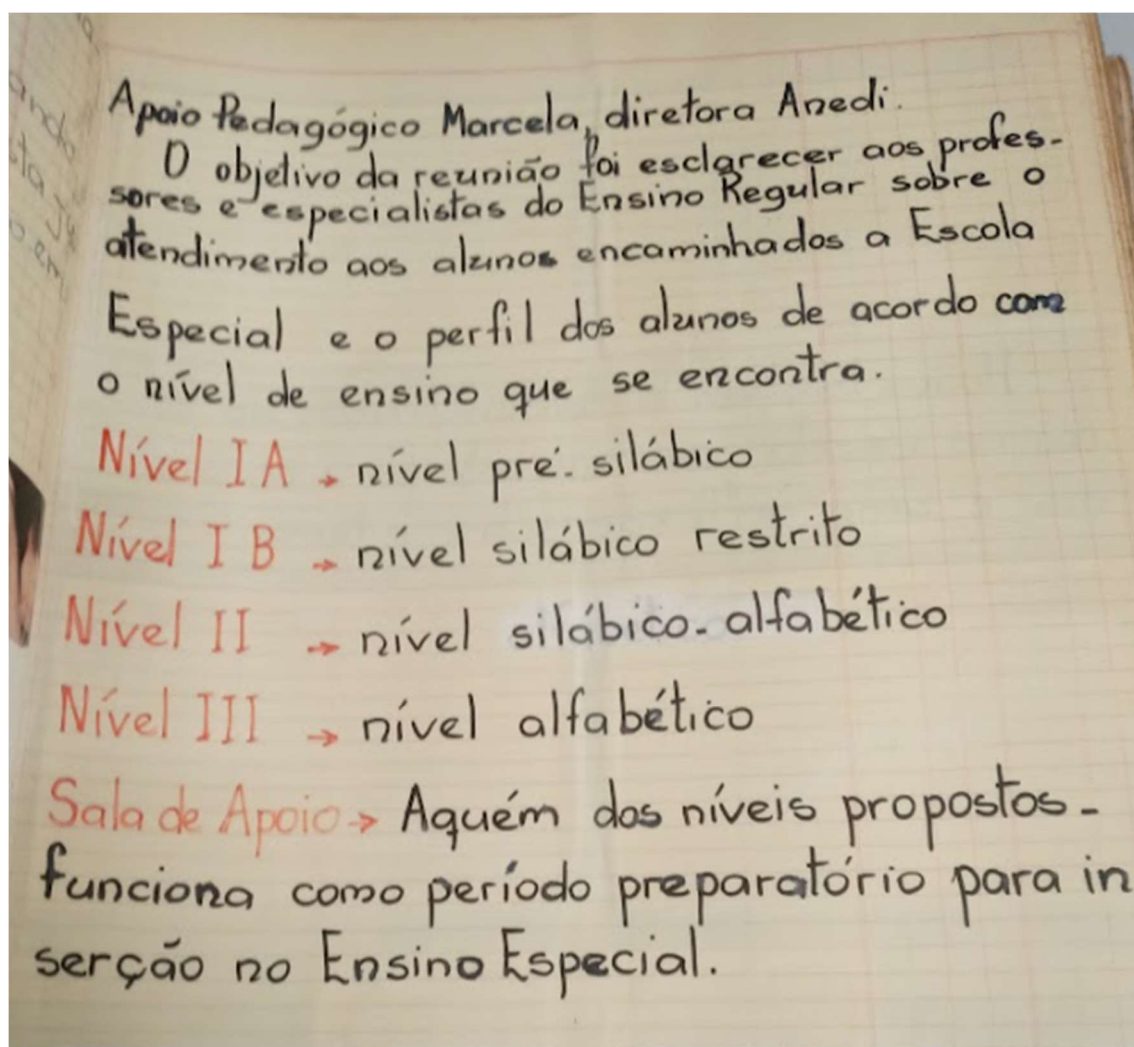 Apoio Pedagógico Marcela, diretora Anedi.
O objetivo da reunião foi esclarecer aos profes-
sores e especialistas do Ensino Regular sobre o
atendimento aos alunos encaminhados a Escola
Especial e o perfil dos alunos de acordo com
o nível de ensino que se encontra.
Nível I A → nível pré-silábico
Nível I B → nível silábico restrito
Nível II → nível silábico-alfabético
Nível III → nível alfabético
Sala de Apoio → Aquém dos níveis propostos-
funciona como período preparatório para in
serção no Ensino Especial.